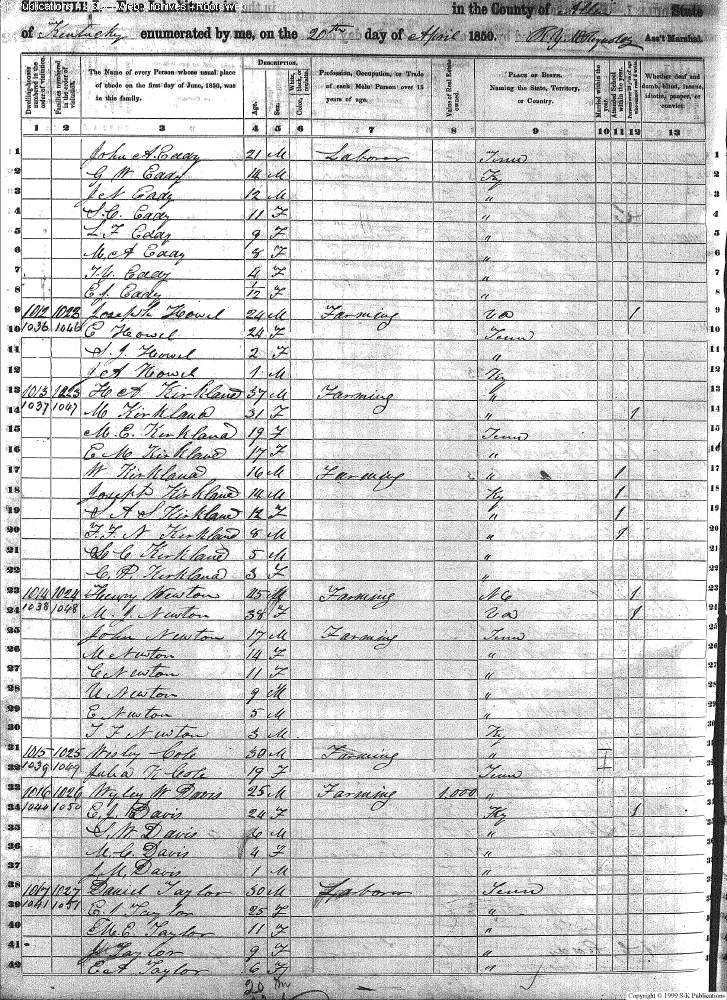 in the County of Allen State
of Kentucky enumerated by me, on the 20th day of April 1850. Ass't Marshal.
Dwelling-houses numbered in the order of visitation.
Families numbered in the order of visitation.
The Name of every Person whose usual place of abode on the first day of June, 1850, was in this family.
DESCRIPTION.
Age.
Sex.
Color,
Profession, Occupation, or Trade of each Male Person over 15 years of age.
Value of Real Estate owned.
PLACE OF BIRTH. Naming the State, Territory, or Country.
Married within the year.
Attended School within the year.
Whether deaf and dumb, blind, insane, idiotic, pauper, or convict.
1 2 3 4 5 6 7 8 9 10 11 12 13
1 John A. Eady 21 M Laborer Tenn 1
2 G W Eady 14 M Ky 2
3 J N Eady 12 M " 3
4 S. C. Eady 11 F " 4
5 L F Eady 9 F " 5
6 M. A Eady 8 F " 6
7 Eady 4 F " 7
8 E J. Eady 1/12 F " 8
9 1012 1022 Joseph Howel 24 M Farming Va 1 9
10 1036 1046 E Howel 24 F Tenn 10
11 S. J. Howel 2 F " 11
12 J A Howel 1 M Ky 12
13 1013 1023 H A Kirkland 37 M Farming " 13
14 1037 1047 M Kirkland 31 F " 1 14
15 M. E. Kirkland 19 F Tenn 15
16 E M. Kirkland 17 F " 16
17 W Kirkland 16 M Farming " 1 17
18 Joseph Kirkland 14 M Ky 1 18
19 S A S Kirkland 12 F " 1 19
20 F. F. N Kirkland 8 M " 1 20
21 C Kirkland 5 M " 21
22 C. A Kirkland 3 F " 22
23 1014 1024 Henry Newton 45 M Farming N C 1 23
24 1038 1048 M. J. Newton 38 F Va 1 24
25 John Newton 17 M Farming Tenn 25
26 M Newton 14 F " 26
27 C Newton 11 F " 27
28 U Newton 9 M " 28
29 E Newton 5 M " 29
30 T F Newton 3 M Ky 30
31 1015 1025 Wesley Cole 30 M Farming " 31
32 1039 1049 Julia N Cole 19 F Tenn 32
33 1016 1026 Wyley W Davis 25 M Farming 1,000 " 33
34 1040 1050 E. J. Davis 24 F Ky 1 34
35 S. W. Davis 6 M " 35
36 M. C. Davis 4 F " 36
37 J. M. Davis 1 M " 37
38 1017 1027 Daniel Taylor 30 M Laborer Tenn 38
39 1041 1051 E. J Taylor 25 F " 39
40 M. E. Taylor 11 F " 40
41 J Taylor 9 F " 41
42 E A Taylor 6 F " 42
20 m
Copyright © 1999 S-K Publications